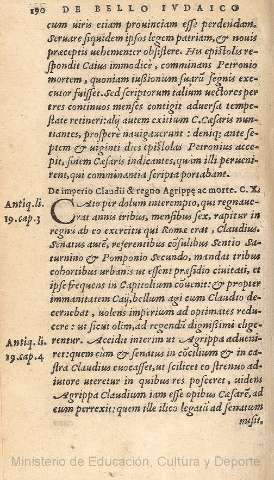 190 DE BELLO IVDAICO
cum uiris etiam prouinciam esse perdendam.
Seruare siquidem ipsos legem patriam, & nouis
præceptis uehementer obsistere. His epistolis re-
spondit Caius immodicè, comminans Petronio
mortem, quoniam iussionum suarũ segnis exe-
cutor fuisset. Sed scriptorum talium uectores per
tres continuos menses contigit aduersa tempe-
state retineri: alij autem exitium C. Cæsaris nun-
tiantes, prosperè nauigarunt: deniq; ante se-
ptem & uiginti dies epistolas Petronius acce-
pit, finem Cæsaris indicantes, quàm illi perueni-
rent, qui comminantia scripta portabant.
De imperio Claudii & regno Agrippę ac morte. C. X.
Antiq. li.
19. cap. 3
CAio per dolum interempto, qui regnaue-
rat annis tribus, mensibus sex, rapitur in
regnũ ab eo exercitu qui Romę erat, Claudius.
Senatus autẽ, referentibus cõsulibus Sentio Sa-
turnino & Pomponio Secundo, mandat tribus
cohortibus urbanis ut essent præsidio ciuitati, et
ipse frequens in Capitolium cõuenit: & propter
immanitatem Caij, bellum agi cum Claudio de-
cernebat, uolens imperium ad optimates redu-
cere: ut sicut olim, ad regendũ dignissimi elige-
Antiq. li.
19. cap. 4
rentur. Accidit interim ut Agrippa adueni-
ret: quem cùm & senatus in cõcilium & in ca-
stra Claudius euocasset, ut scilicet eo strenuo ad-
iutore uteretur in quibus res posceret, uidens
Agrippa Claudium iam esse opibus Cæsarẽ, ad
eum perrexit: quem ille ilico legatũ ad senatum
misit,
Ministerio de Educación, Cultura y Deporte